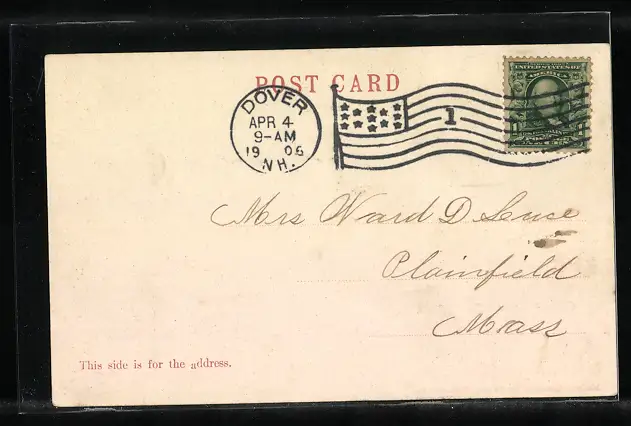 POST CARD
DOVER
APR 4
9-AM
19 06
N.H.
1
UNITED STATES OF
AMERICA
Mrs Ward D
Plainfield
Mass
This side is for the address.